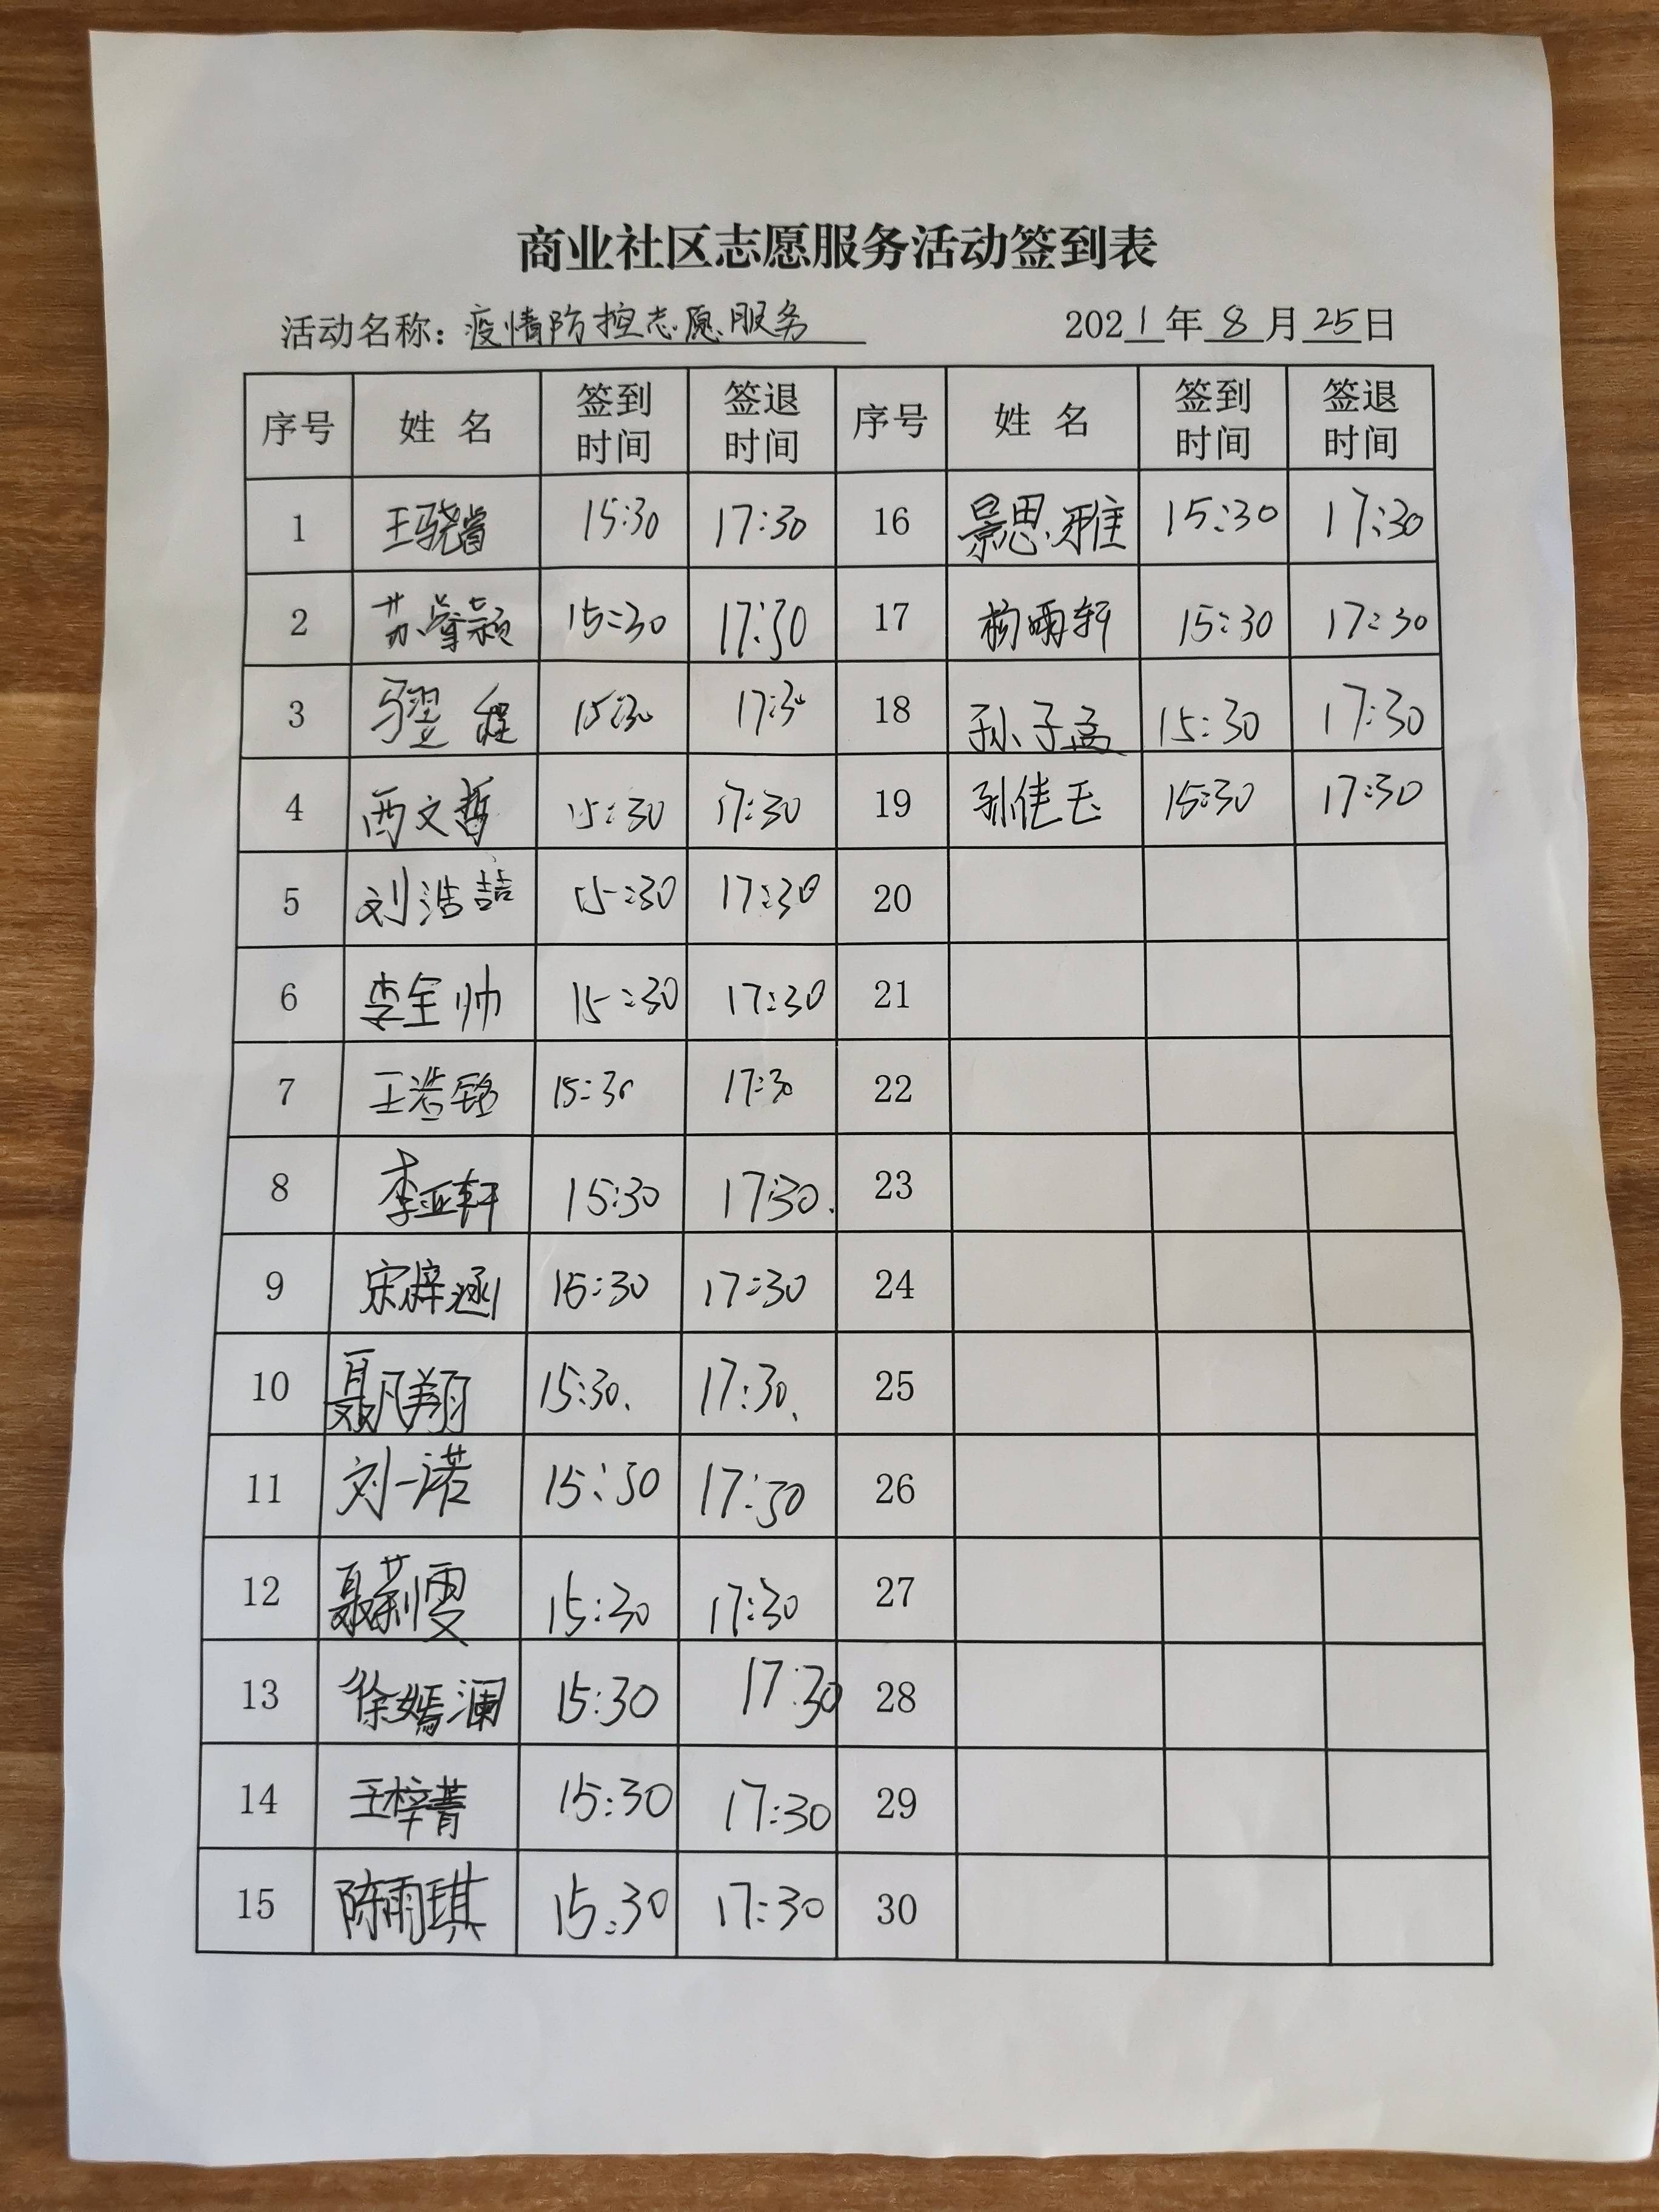 商业社区志愿服务活动签到表
活动名称：疫情防控志愿服务 2021年8月25日
序号 姓名 签到时间 签退时间 序号 姓名 签到时间 签退时间
1 王骁睿 15:30 17:30 16 景思雅 15:30 17:30
2 苏睿颖 15:30 17:30 17 杨雨轩 15:30 17:30
3 马翌程 15:30 17:30 18 孙子孟 15:30 17:30
4 西文哲 15:30 17:30 19 孙佳玉 15:30 17:30
5 刘浩喆 15:30 17:30 20
6 李全帅 15:30 17:30 21
7 王浩铭 15:30 17:30 22
8 李亚轩 15:30 17:30. 23
9 宋梓涵 15:30 17:30 24
10 聂凡翔 15:30. 17:30. 25
11 刘一诺 15:30 17:30 26
12 聂莉雯 15:30 17:30 27
13 徐嫣澜 15:30 17:30 28
14 王梓菁 15:30 17:30 29
15 陈雨琪 15:30 17:30 30